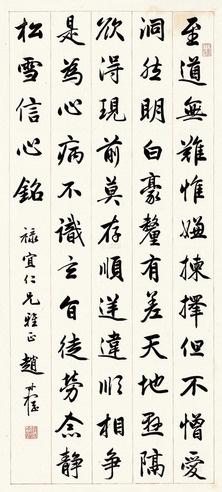 至道無難惟嫌揀擇但不憎愛
洞然明白豪釐有差天地懸隔
欲得現前莫存順逆違順相争
是為心病不識玄旨徒勞念靜
松雪信心銘
祿宜仁兄雅正 趙